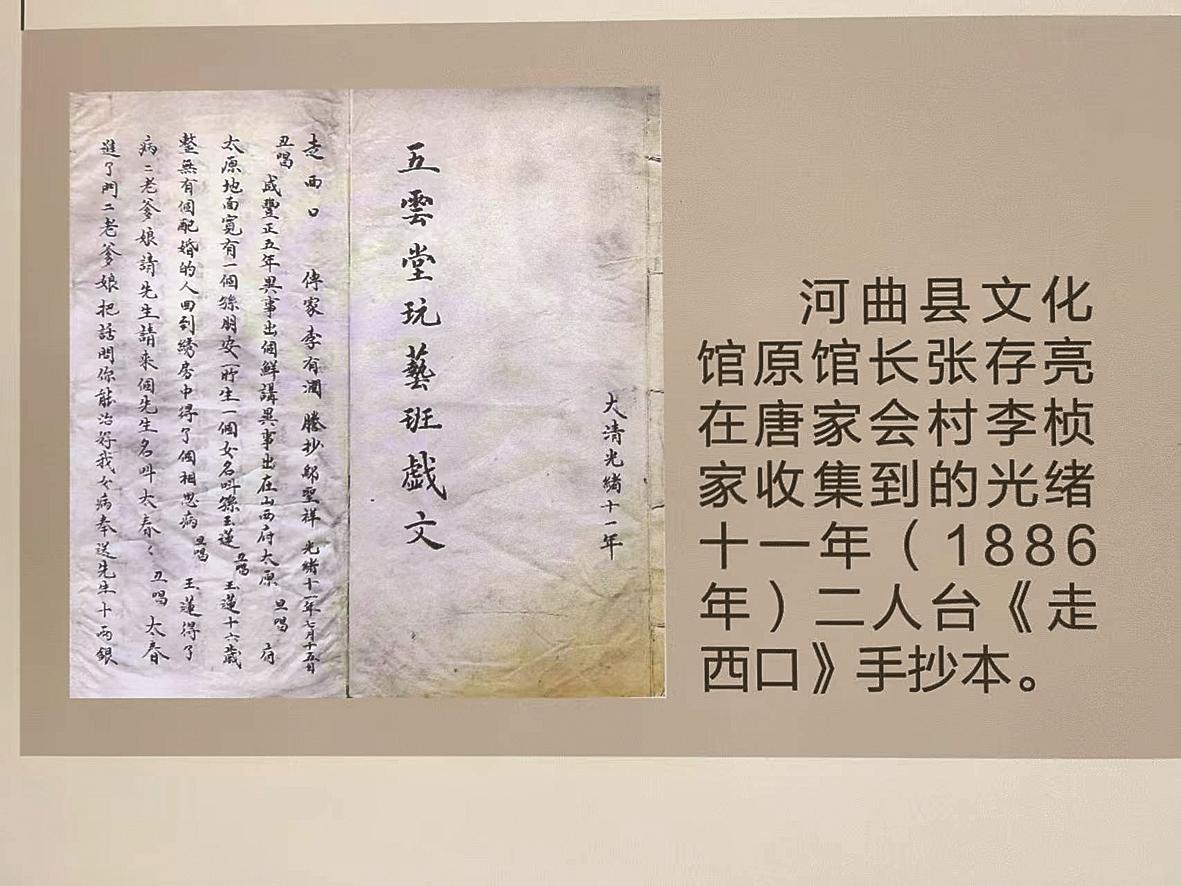 大清光緒十一年
五雲堂玩藝班戲文
走西口 傳家李有潤 謄抄邬聖祥 光緒十一年七月十五日
丑唱 咸豐正五年異事出個鮮講異事出在山西府太原 旦唱 府
太原地面寬有一個孫朋安所生一個女名叫孫玉蓮 丑唱 玉蓮十六歲
整無有個配婚的人回到綉房中得了個相思病 旦唱 玉蓮得了
病二老爹娘請先生請來個先生名叫太春〻 丑唱 太春
進了門二老爹娘把話問你能治好我女病奉送先生十兩銀
河曲县文化
馆原馆长张存亮
在唐家会村李桢
家收集到的光绪
十一年（1886
年）二人台《走
西口》手抄本。